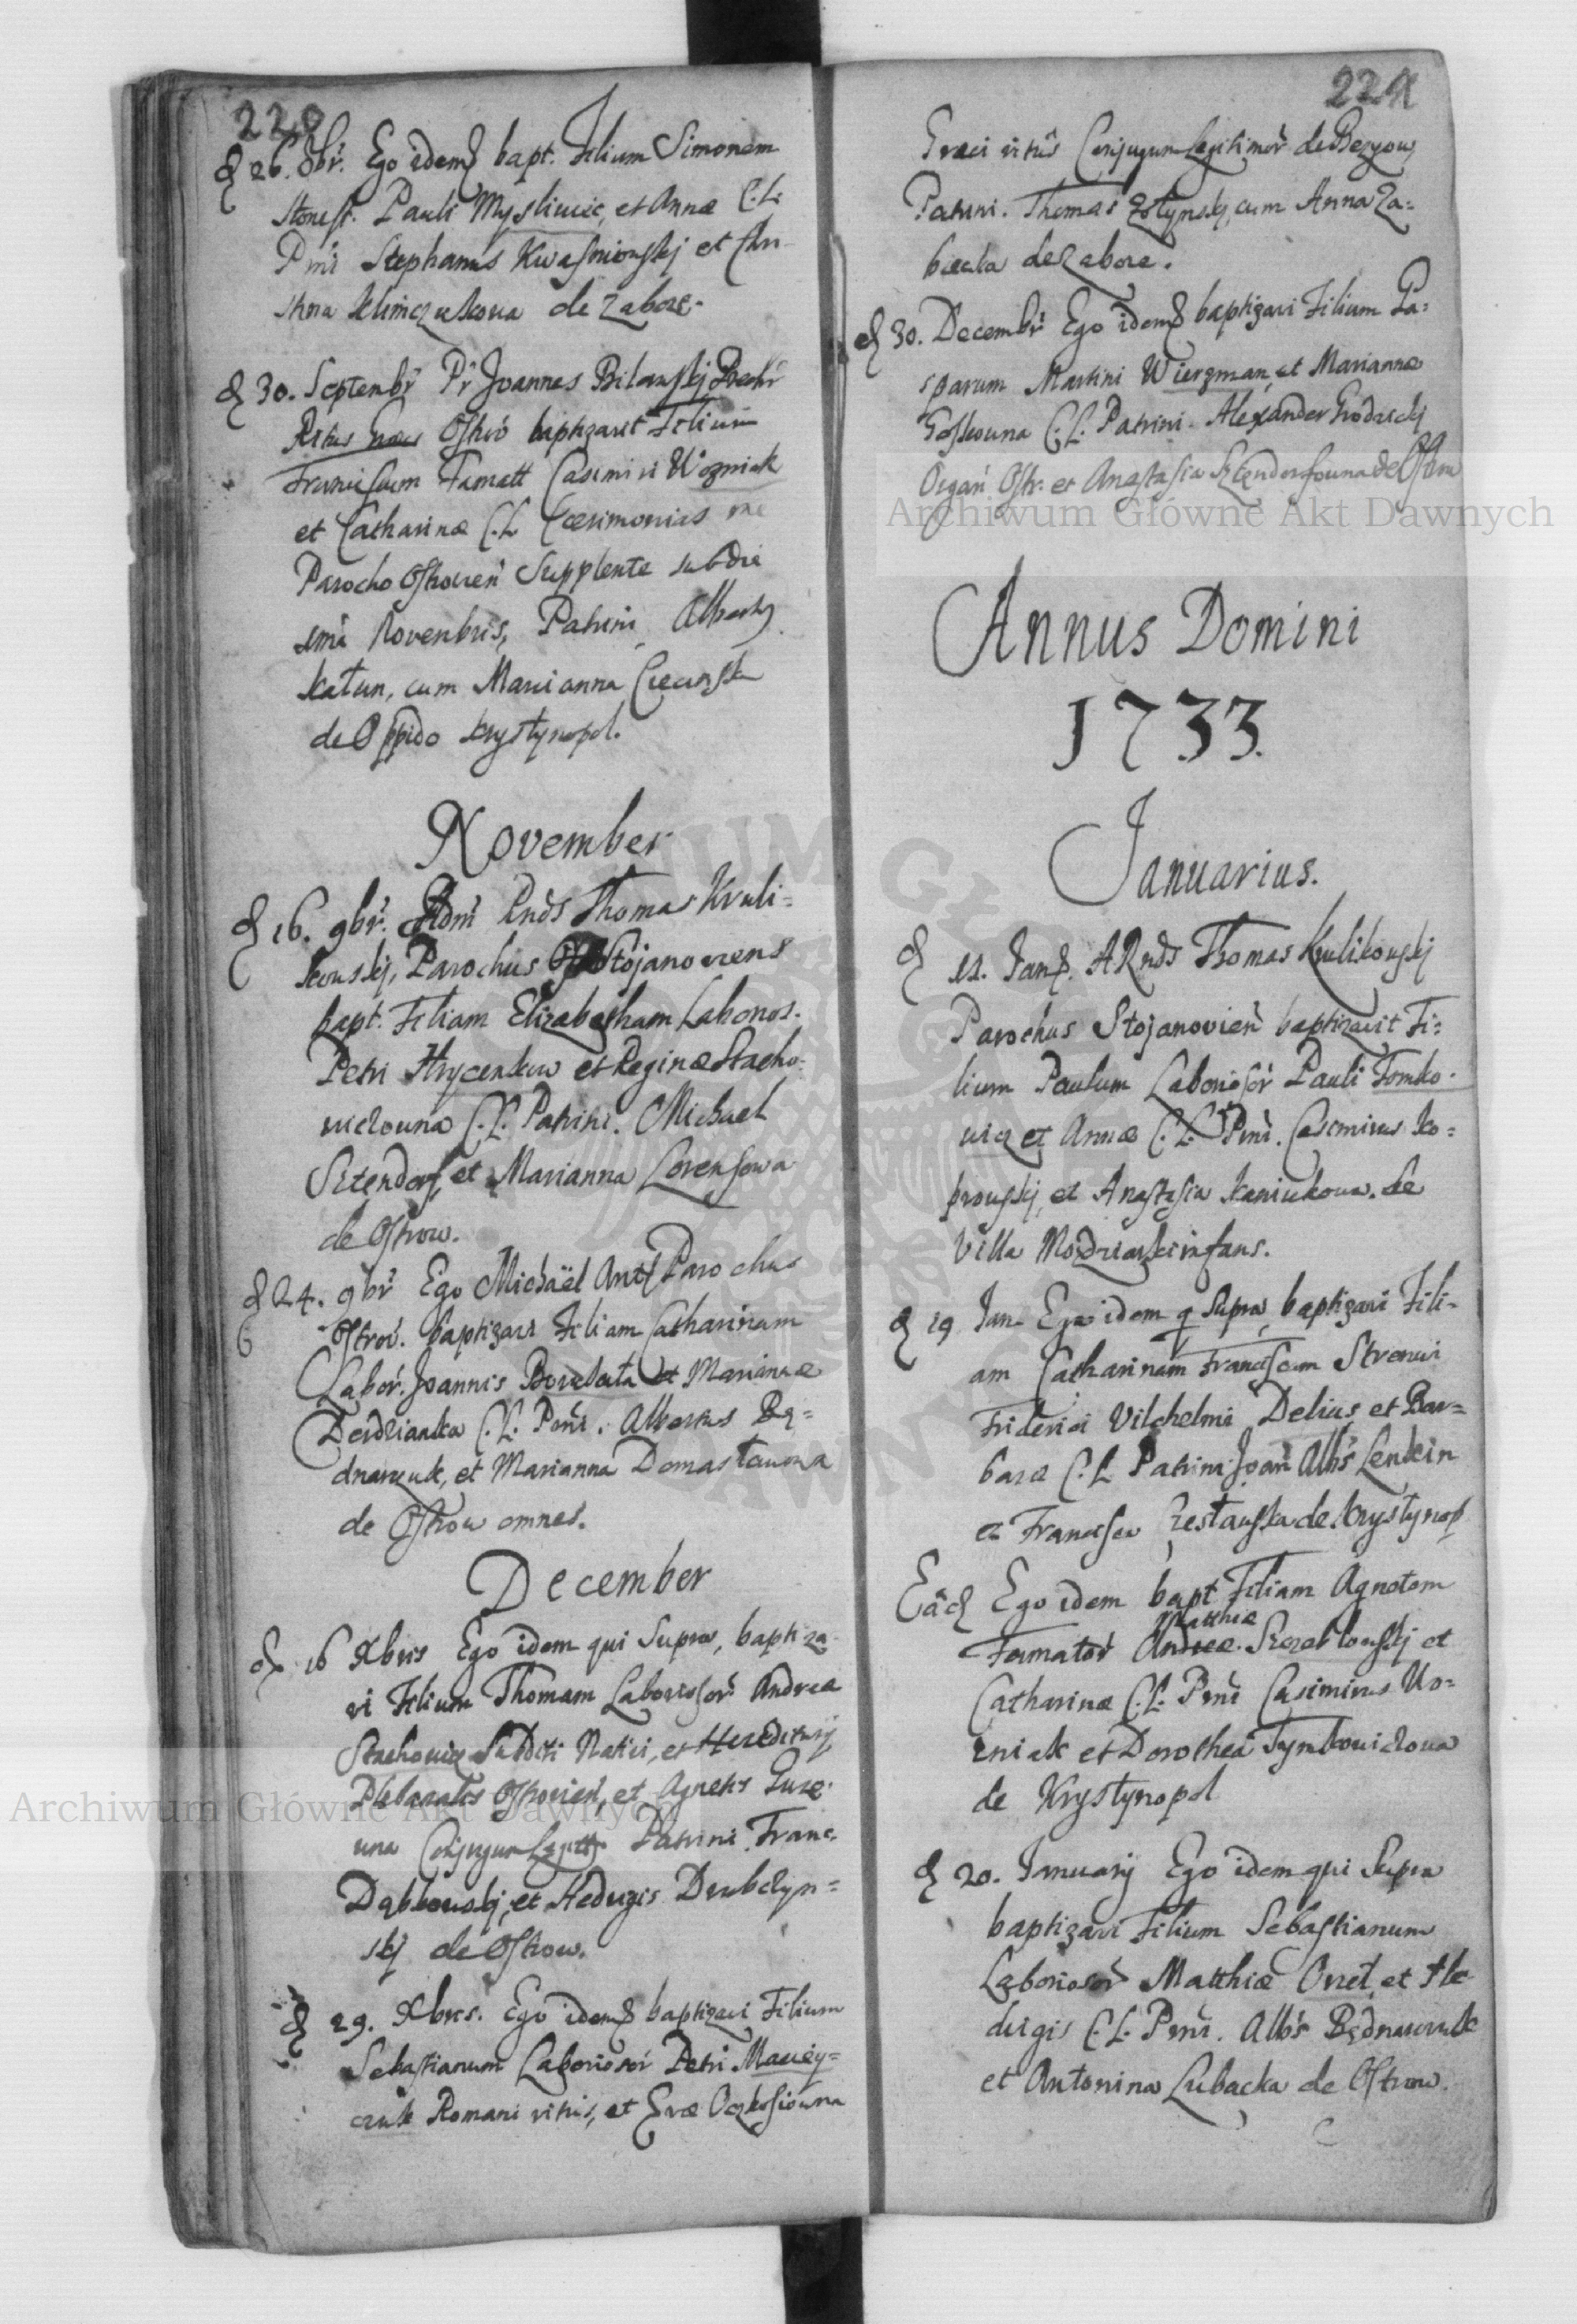 220
d 26. 8br. Ego idemq bapt. Filium Simonem
Honest. Pauli Mysliwiec, et Annæ C. L.
Pmi Stephanus Kwasniowskj et Chri-
stina Klimczukowa de Zabcze.
d 30. Septembr Pr Joannes Bilawskj
Ritus Ostrō baptizavit Filium
Franciscum Famatt Casimiri Wozniak
et Catharinæ C. L. Cærimonias me
Parocho Ostrovien Supplente sub die
ima Novembris, Patrini Albertq
Katun, cum Marianna
de Oppido Krystynopol.
November
d 16. 9br. Adm Rnds Thomas Kruli=
kowskj, Parochus Stojanoviens
bapt. Filiam Elizabetham Labonos.
Petri Hrycenkow et Reginæ Stacho=
wiczowna C. L. Patrini. Michael
Sztendorf, et Marianna Lorensowa
de Ostrow.
d 24. 9br Ego Michaël Ant Parochus
Ostrov. baptizavi Filiam Catharinam
Labor. Joannis et Mariannæ
Derdzianka C. L. Pmi. Albertus Bę=
dnarczuk, et Marianna Domastawowa
de Ostrow omnes.
December
d 16 Xbris Ego idem qui Supra, baptiza-
vi Filium Thomam Laboriosor Andreæ
Stachowicz Subditi Nativi, et Hereditarij
Plebanalis Ostrovien, et Agnetis Guze-
una Conjugum Legitt Patrini. Franc.
Dąbkowskj, et Hedvigis Drubczyn=
skj de Ostrow.
d 29. Xbris. Ego idemq baptizavi Filium
Sebastianum Laboriosor Petri Maciey=
czuk Romani ritus, et Evæ Oczkosiowna
221
Græci ritūs Conjugum Legitimor de
Patrini. Thomas Zołtynskj, cum Anna Za=
bieala de Zabcze.
d 30. Decembr Ego idemq baptizavi Filium Ga=
sparum Martini Wierzman, et Mariannæ
Goskowna C. L. Patrini. Alexander Grodzickj
Organ Ostr. et Anastasia Sztendorfowna de Ostrow
Annus Domini
1733.
Januarius.
d 11. Janq. ARnds Thomas Krulikowskj
Parochus Stojanovien baptizavit Fi=
lium Paulum Laboriosor Pauli Tomko-
wicz et Annæ C. L. Pmi. Casimirus Ko=
prowskj, et Anastasia Kaniukowa. de
Villa infans.
d 19 Jan. Ego idem q Supra, baptizavi Fili-
am Catharinam Franciscam Strenui
Friderici Vilchelmi Delius et Bar=
baræ C. L. Patrini Joan Albs Lenkin
et Francisca de Krystynop
Eâd Ego idem bapt. Filiam Agnetem
Matthiæ
Famator Andreæ et
Catharinæ C. L. Pmi Casimirus Wo=
zniak et Dorothea Tymkowiczowa
de Krystynopol
d 20. Januarij Ego idem qui Supra
baptizavi Filium Sebastianum
Laboriosor Matthiæ Oret, et He
dvigis C. L. Pmi. Albs Będnarczuk
et Antonina Lubacka de Ostrow.
Archiwum Główne Akt Dawnych
Archiwum Główne Akt Dawnych